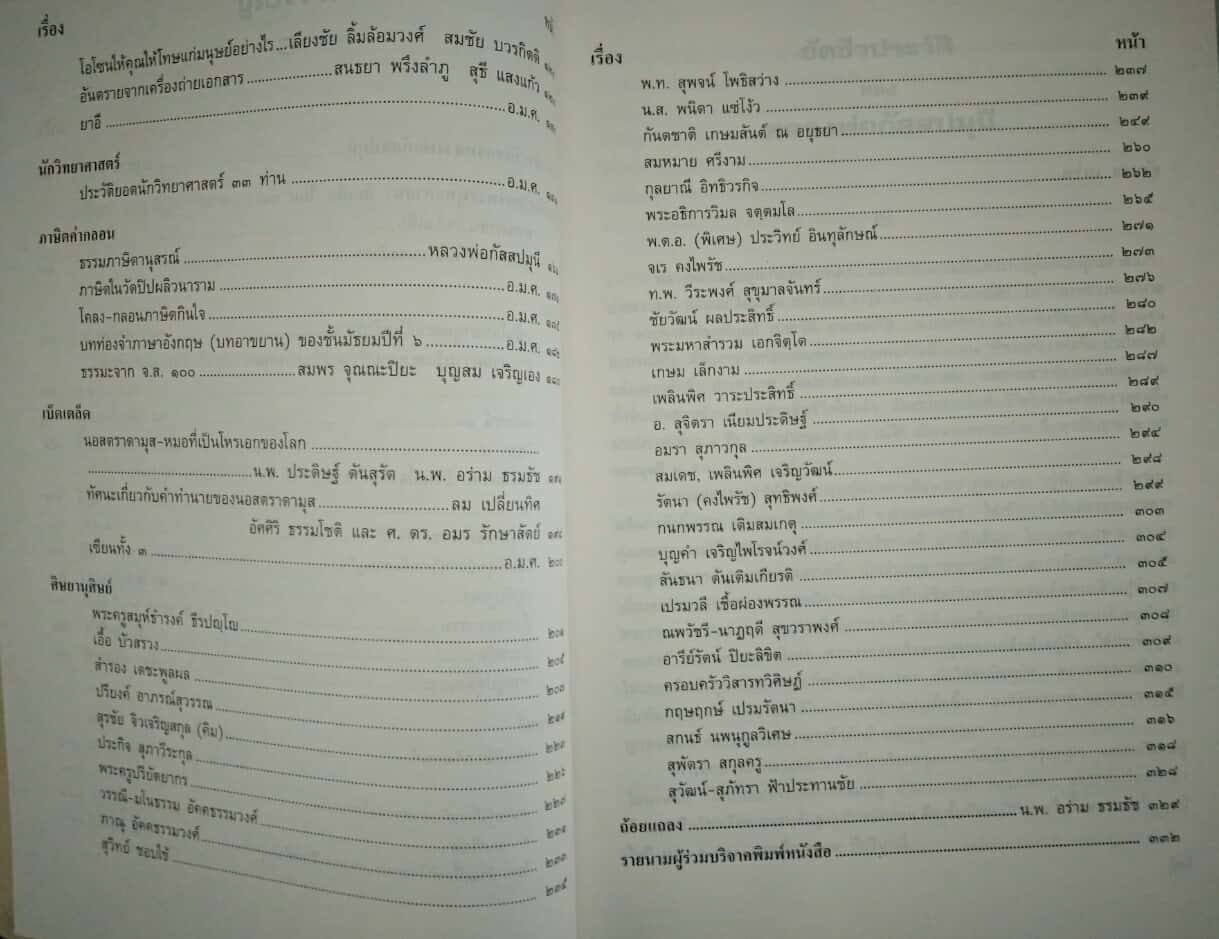 เรื่อง
โอโซนให้คุณให้โทษแก่มนุษย์อย่างไร...เลียงชัย ลิ้มล้อมวงศ์ สมชัย บวรกิตติ
อันตรายจากเครื่องถ่ายเอกสาร......................สนธยา พรึงลำภู สุธี แสงแก้ว
ยาอี......................อ.ม.ศ.
นักวิทยาศาสตร์
ประวัติยอดนักวิทยาศาสตร์ ๓๓ ท่าน......................อ.ม.ศ.
ภาษิตคำกลอน
ธรรมภาษิตานุสรณ์......................หลวงพ่อกัสสปมุนี
ภาษิตในวัดปิปผลิวนาราม......................อ.ม.ศ.
โคลง-กลอนภาษิตกินใจ......................อ.ม.ศ.
บทท่องจำภาษาอังกฤษ (บทอาขยาน) ของชั้นมัธยมปีที่ ๖......................อ.ม.ศ.
ธรรมะจาก จ.ส. ๑๐๐......................สมพร จุณณะปิยะ บุญสม เจริญเอง
เบ็ดเตล็ด
นอสตราดามุส-หมอที่เป็นโหรเอกของโลก......................
......................น.พ. ประดิษฐ์ ตันสุรัต น.พ. อร่าม ธรมธัช
ทัศนะเกี่ยวกับคำทำนายของนอสตราดามุส......................ลม เปลี่ยนทิศ
อัศศิริ ธรรมโชติ และ ศ. ดร. อมร รักษาสัตย์
เซียนทั้ง ๓......................อ.ม.ศ.
ศิษยานุศิษย์
พระครูสมุห์ธำรงค์ ธีรปญฺโญ......................
เอื้อ บัวสรวง......................
สำรอง เดชะพูลผล......................
ปรียงค์ อาภรณ์สุวรรณ......................
สุรชัย จิวเจริญสกุล (คิม)......................
ประกิจ สุภาวีระกุล......................
พระครูปริยัตยากร......................
วรรณี-มโนธรรม อัคคธรรมวงศ์......................
ภาณุ อัคคธรรมวงศ์......................
สุวิทย์ ชอบใช้......................
เรื่อง หน้า
พ.ท. สุพจน์ โพธิสว่าง......................๒๓๗
น.ส. พนิดา แซ่โง้ว......................๒๓๙
กันตชาติ เกษมสันต์ ณ อยุธยา......................๒๔๙
สมหมาย ศรีงาม......................๒๖๐
กุลยาณี อิทธิวรกิจ......................๒๖๒
พระอธิการวิมล จตฺตมโล......................๒๖๕
พ.ต.อ. (พิเศษ) ประวิทย์ อินทุลักษณ์......................๒๗๑
จเร คงไพรัช......................๒๗๓
ท.พ. วีระพงศ์ สุขุมาลจันทร์......................๒๗๖
ชัยวัฒน์ ผลประสิทธิ์......................๒๘๐
พระมหาสำรวม เอกจิตฺโต......................๒๘๒
เกษม เล็กงาม......................๒๘๗
เพลินพิศ วาระประสิทธิ์......................๒๘๙
อ. สุจิตรา เนียมประดิษฐ์......................๒๙๐
อมรา สุภาวกุล......................๒๙๔
สมเดช, เพลินพิศ เจริญวัฒน์......................๒๙๘
รัตนา (คงไพรัช) สุทธิพงศ์......................๒๙๙
กนกพรรณ เติมสมเกตุ......................๓๐๓
บุญคำ เจริญไพโรจน์วงศ์......................๓๐๔
สันธนา ตันเติมเกียรติ......................๓๐๕
เปรมวลี เชื้อผ่องพรรณ......................๓๐๗
ณพวัชรี-นาฏฤดี สุขวราพงศ์......................๓๐๘
อารีย์รัตน์ ปิยะลิขิต......................๓๐๙
ครอบครัววิสารทวิศิษฎ์......................๓๑๐
กฤษฤกษ์ เปรมรัตนา......................๓๑๕
สกนธ์ นพนุกูลวิเศษ......................๓๑๖
สุพัตรา สกุลครู......................๓๑๘
สุวัฒน์-สุภัทรา ฟ้าประทานชัย......................๓๒๘
ถ้อยแถลง......................น.พ. อร่าม ธรมธัช ๓๒๙
รายนามผู้ร่วมบริจาคพิมพ์หนังสือ......................๓๓๒